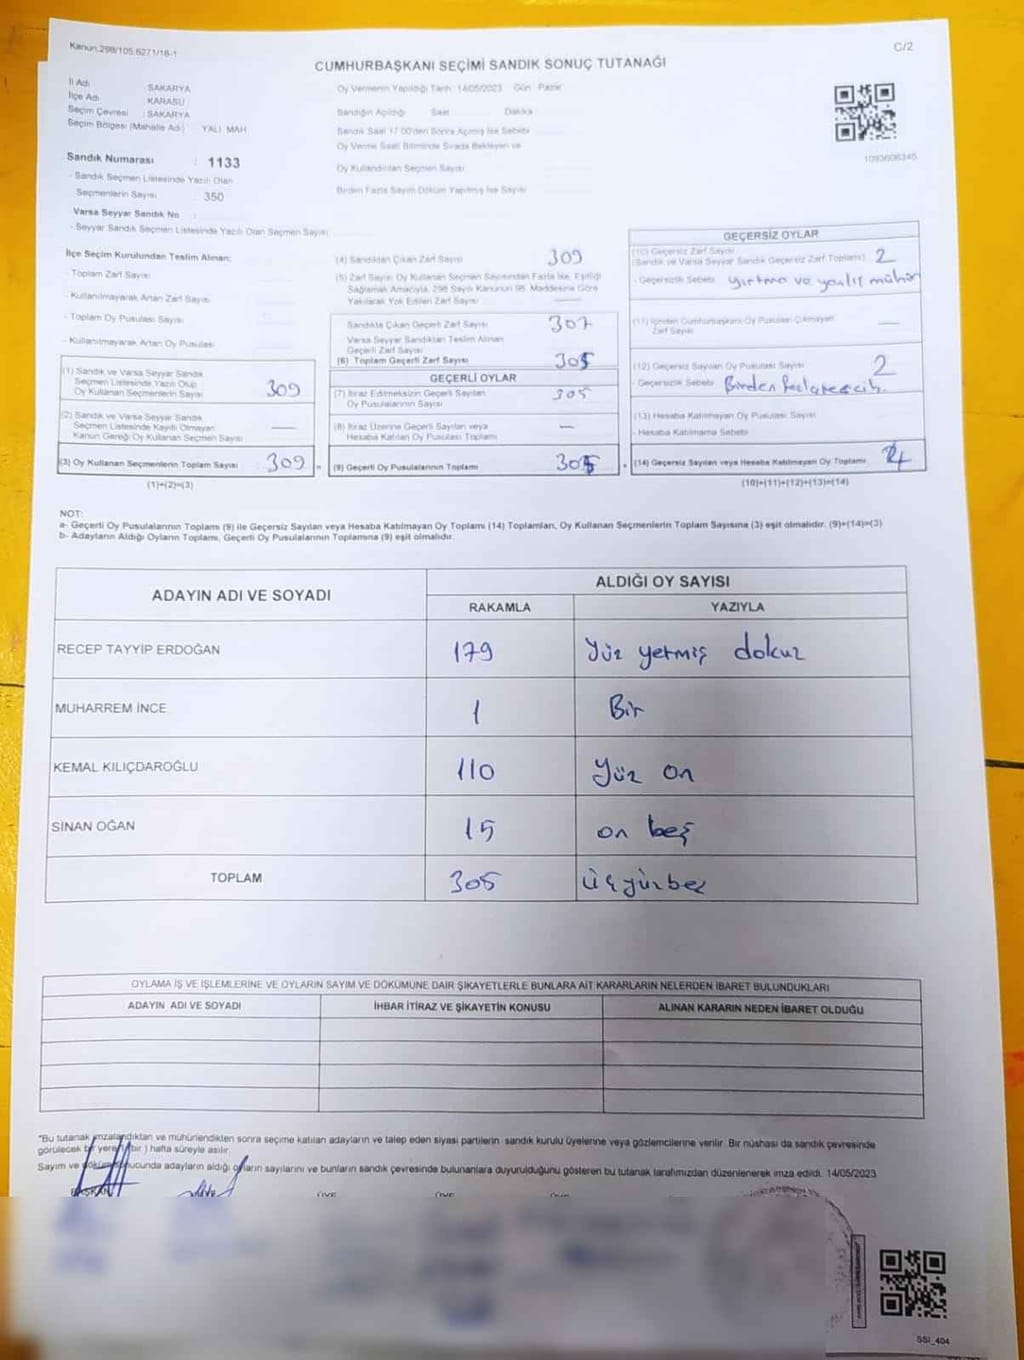 Kanun:298/105.6271/18-1
C/2
CUMHURBAŞKANI SEÇİMİ SANDIK SONUÇ TUTANAĞI
İl Adı : SAKARYA
İlçe Adı : KARASU
Seçim Çevresi : SAKARYA
Seçim Bölgesi (Mahalle Adı) : YALI MAH
Oy Vermenin Yapıldığı Tarih: 14/05/2023 Gün: Pazar
Sandığın Açıldığı Saat Dakika
Sandık Saat 17:00'den Sonra Açılmış İse Sebebi
Oy Verme Saati Bitiminde Sırada Bekleyen ve
Oy Kullandırılan Seçmen Sayısı
Birden Fazla Sayım Döküm Yapılmış İse Sayısı
1093606345
Sandık Numarası : 1133
- Sandık Seçmen Listesinde Yazılı Olan
Seçmenlerin Sayısı : 350
Varsa Seyyar Sandık No :
- Seyyar Sandık Seçmen Listesinde Yazılı Olan Seçmen Sayısı
İlçe Seçim Kurulundan Teslim Alınan;
- Toplam Zarf Sayısı
- Kullanılmayarak Artan Zarf Sayısı
- Toplam Oy Pusulası Sayısı
- Kullanılmayarak Artan Oy Pusulası
(1) Sandık ve Varsa Seyyar Sandık
Seçmen Listesinde Yazılı Olup
Oy Kullanan Seçmenlerin Sayısı 309
(2) Sandık ve Varsa Seyyar Sandık
Seçmen Listesinde Kayıtlı Olmayan
Kanun Gereği Oy Kullanan Seçmen Sayısı —
(3) Oy Kullanan Seçmenlerin Toplam Sayısı 309 =
(1)+(2)=(3)
(4) Sandıktan Çıkan Zarf Sayısı 309
(5) Zarf Sayısı Oy Kullanan Seçmen Sayısından Fazla İse, Eşitliği
Sağlamak Amacıyla, 298 Sayılı Kanunun 98. Maddesine Göre
Yakılarak Yok Edilen Zarf Sayısı —
Sandıkta Çıkan Geçerli Zarf Sayısı 307
Varsa Seyyar Sandıktan Teslim Alınan
Geçerli Zarf Sayısı
(6) Toplam Geçerli Zarf Sayısı 305
GEÇERLİ OYLAR
(7) İtiraz Edilmeksizin Geçerli Sayılan
Oy Pusulalarının Sayısı 305
(8) İtiraz Üzerine Geçerli Sayılan veya
Hesaba Katılan Oy Pusulası Toplamı —
(9) Geçerli Oy Pusulalarının Toplamı 305 +
GEÇERSİZ OYLAR
(10) Geçersiz Zarf Sayısı
(Sandık ve Varsa Seyyar Sandık Geçersiz Zarf Toplamı) 2
- Geçersizlik Sebebi yırtma ve yanlış mühür
(11) İçinden Cumhurbaşkanı Oy Pusulası Çıkmayan
Zarf Sayısı —
(12) Geçersiz Sayılan Oy Pusulası Sayısı 2
- Geçersizlik Sebebi Birden fazla tercih
(13) Hesaba Katılmayan Oy Pusulası Sayısı
- Hesaba Katılmama Sebebi
(14) Geçersiz Sayılan veya Hesaba Katılmayan Oy Toplamı 4
(10)+(11)+(12)+(13)=(14)
NOT:
a- Geçerli Oy Pusulalarının Toplamı (9) ile Geçersiz Sayılan veya Hesaba Katılmayan Oy Toplamı (14) Toplamları, Oy Kullanan Seçmenlerin Toplam Sayısına (3) eşit olmalıdır. (9)+(14)=(3)
b- Adayların Aldığı Oyların Toplamı, Geçerli Oy Pusulalarının Toplamına (9) eşit olmalıdır.
ADAYIN ADI VE SOYADI
ALDIĞI OY SAYISI
RAKAMLA YAZIYLA
RECEP TAYYİP ERDOĞAN 179 Yüz yetmiş dokuz
MUHARREM İNCE 1 Bir
KEMAL KILIÇDAROĞLU 110 Yüz on
SİNAN OĞAN 15 on beş
TOPLAM 305 üçyüzbeş
OYLAMA İŞ VE İŞLEMLERİNE VE OYLARIN SAYIM VE DÖKÜMÜNE DAİR ŞİKAYETLERLE BUNLARA AİT KARARLARIN NELERDEN İBARET BULUNDUKLARI
ADAYIN ADI VE SOYADI İHBAR İTİRAZ VE ŞİKAYETİN KONUSU ALINAN KARARIN NEDEN İBARET OLDUĞU
"Bu tutanak imzalandıktan ve mühürlendikten sonra seçime katılan adayların ve talep eden siyasi partilerin sandık kurulu üyelerine veya gözlemcilerine verilir. Bir nüshası da sandık çevresinde
görülecek bir yere (bir) hafta süreyle asılır.
Sayım ve döküm sonucunda adayların aldığı oyların sayılarını ve bunların sandık çevresinde bulunanlara duyurulduğunu gösteren bu tutanak tarafımızdan düzenlenerek imza edildi. 14/05/2023
BAŞKAN ÜYE ÜYE ÜYE
SSI_404